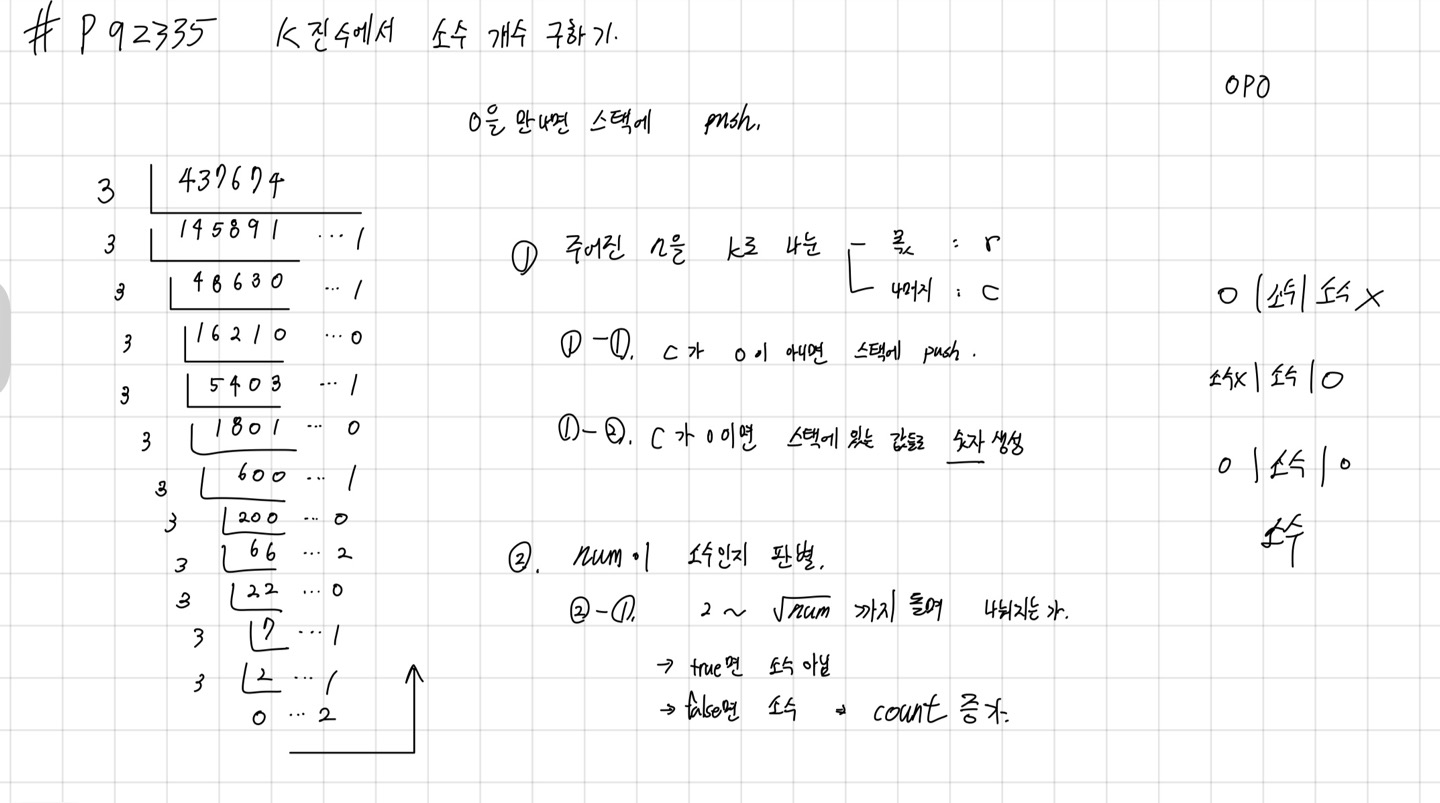 # P 92335 K진수에서 소수 개수 구하기.
0P0
0을 만나면 스택에 push.
3 437674
3 145891 ... 1
3 48630 ... 1
3 16210 ... 0
3 5403 ... 1
3 1801 ... 0
3 600 ... 1
3 200 ... 0
3 66 ... 2
3 22 ... 0
3 7 ... 1
3 2 ... 1
0 ... 2
① 주어진 n을 k로 나눈 - 몫 : r
나머지 : c
①-①. c가 0이 아니면 스택에 push.
①-②. c가 0이면 스택에 있는 값들로 숫자 생성
②. num이 소수인지 판별.
②-①. 2 ~ √num 까지 돌며 나눠지는가.
→ true면 소수 아님
→ false면 소수 → count 증가.
0 | 소수 | 소수 x
소수x | 소수 | 0
0 | 소수 | 0
소수